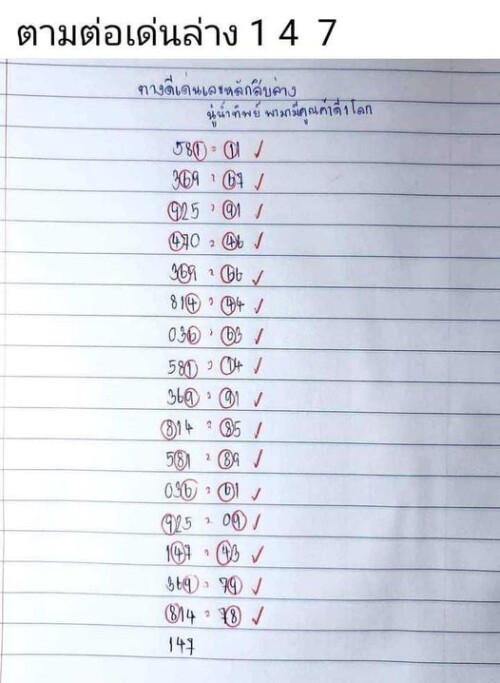 ตามต่อเด่นล่าง 1 4 7
ทางดีเด่นเลขหลักสิบล่าง
ปู่นำทิพย์ พามามีคุณค่าดีๆ โลก
581 = 11 ✓
369 = 67 ✓
925 = 91 ✓
470 = 46 ✓
369 = 66 ✓
814 = 44 ✓
036 = 63 ✓
581 = 14 ✓
369 = 91 ✓
814 = 85 ✓
581 = 89 ✓
036 = 61 ✓
925 = 09 ✓
147 = 43 ✓
369 = 79 ✓
814 = 78 ✓
147